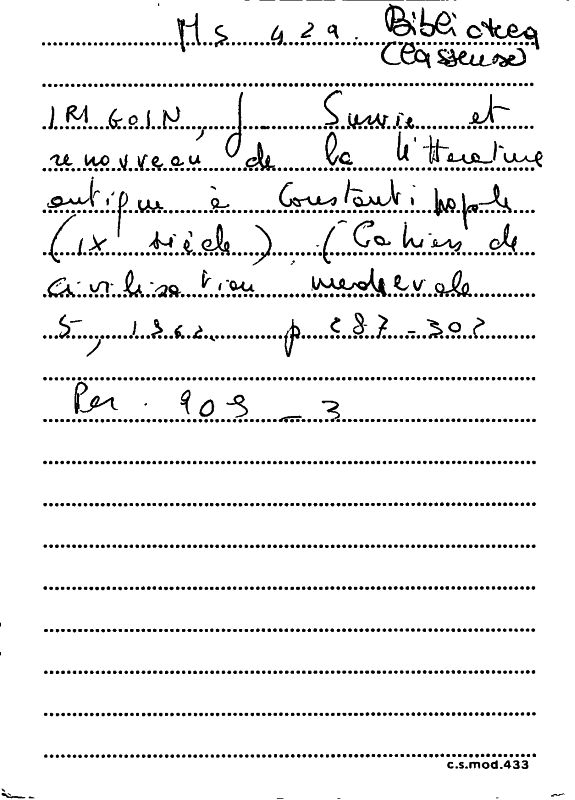 MS 429. Biblioteca
(Classense)
IRIGOIN, J. Survie et
renouveau de la littérature
antique à Constantinople
(IX siècle) (Cahiers de
civilisation medievale
5, 1962. p 287-302
Per. 909 - 3
c.s.mod.433